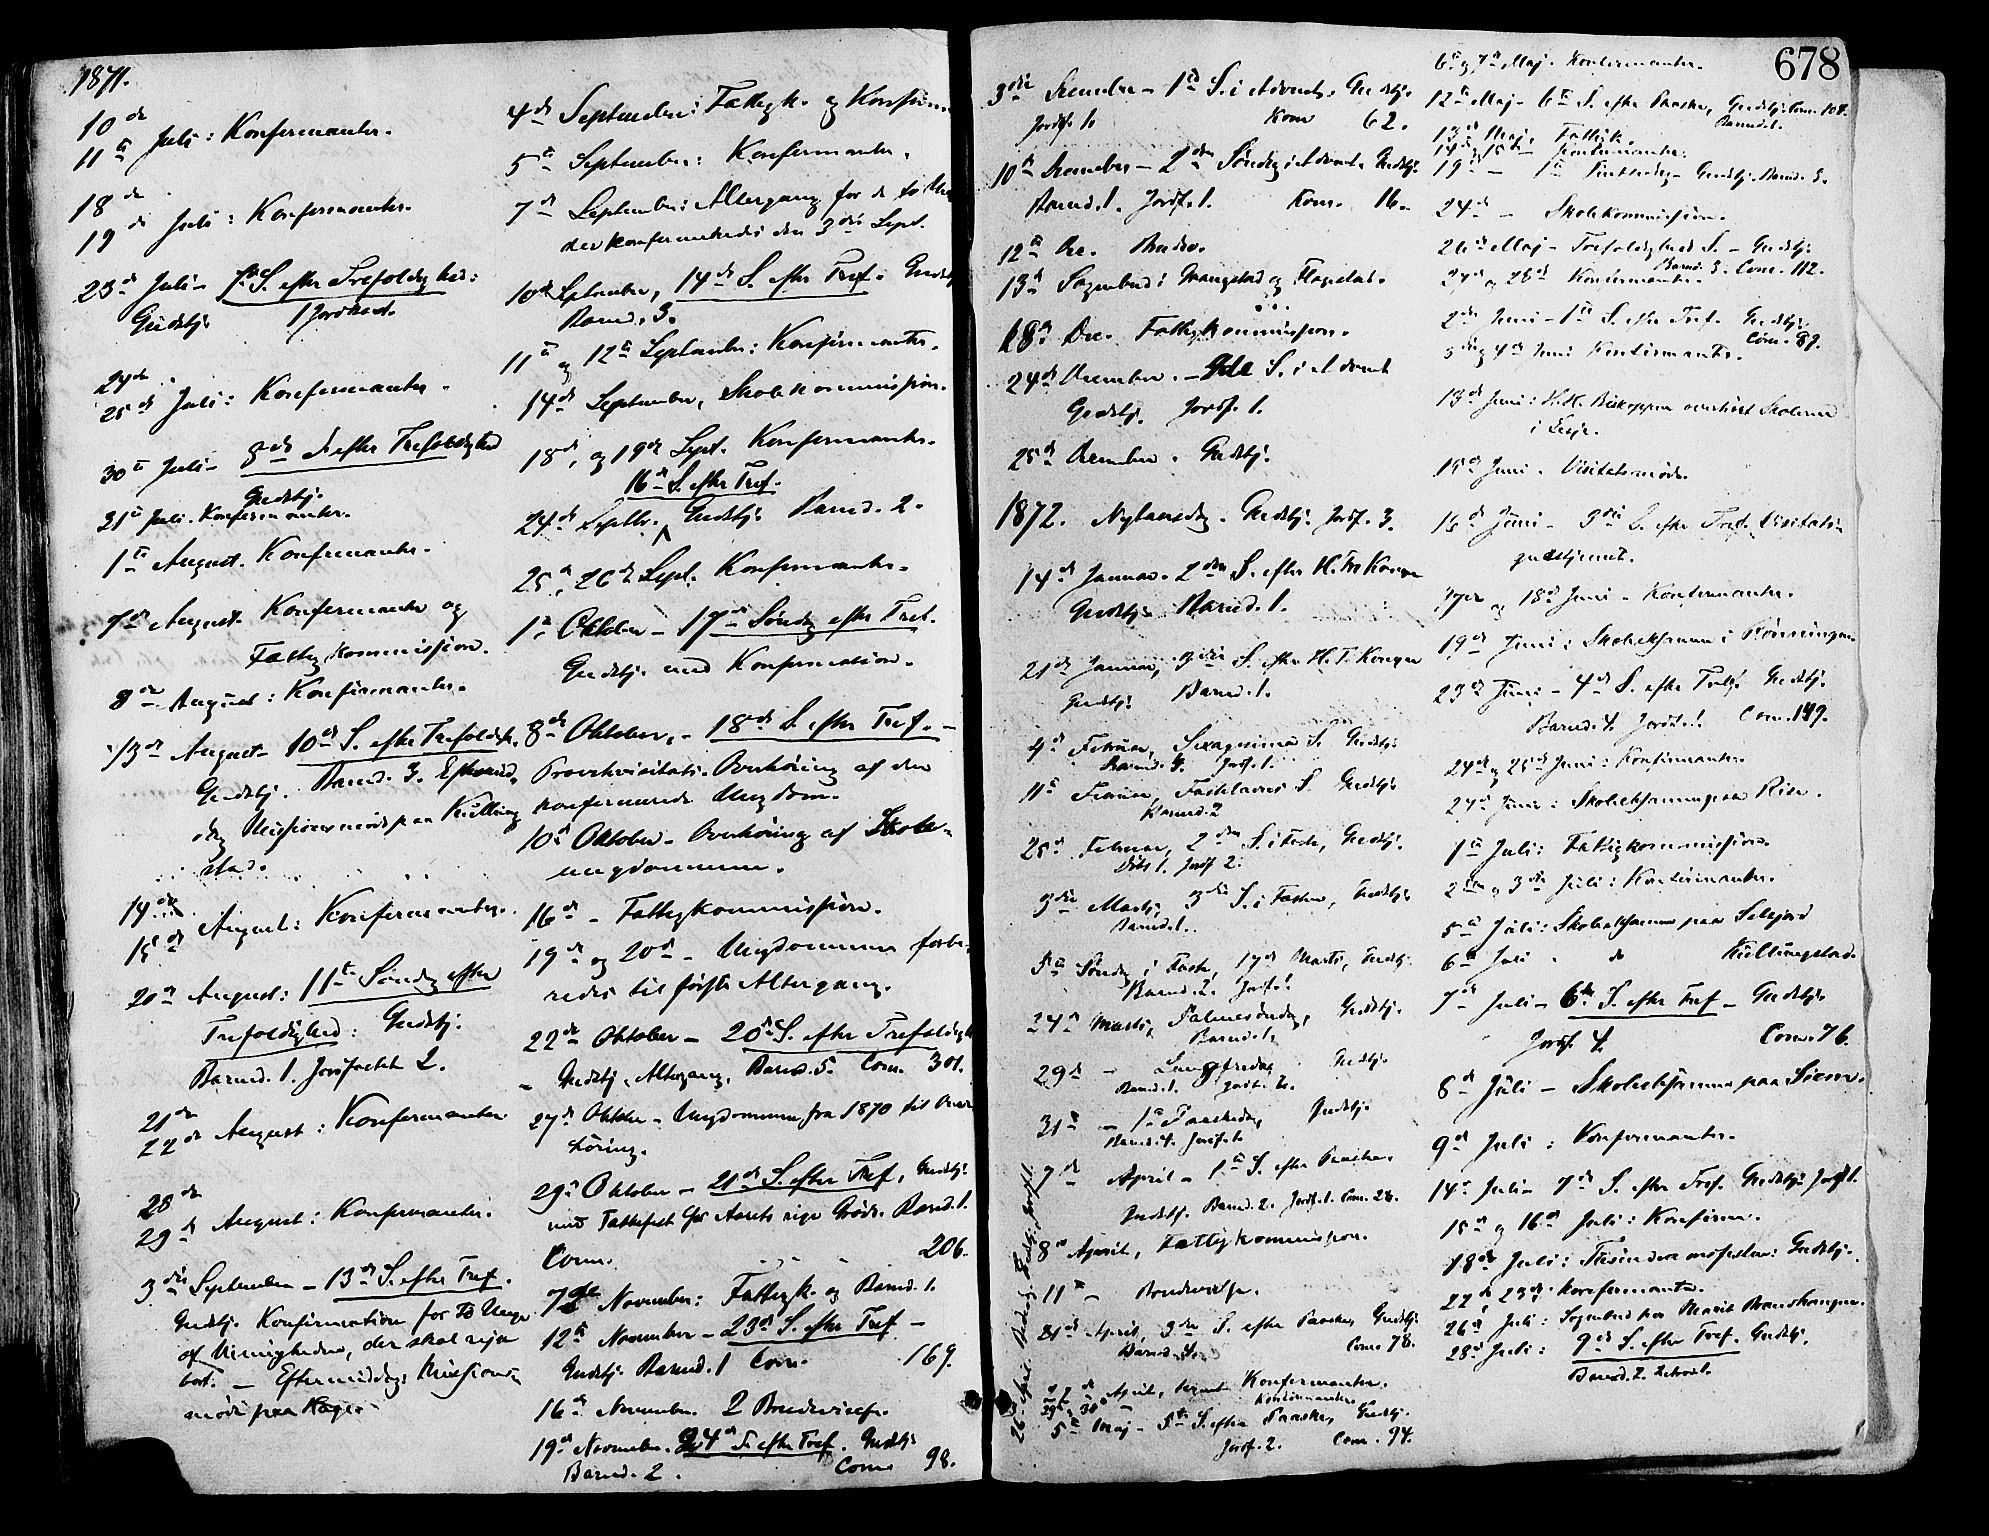 1871.
10de
11te Juli: Konfirmanter.
18de
19de Juli: Konfirmanter.
23de Juli - 7de S. efter Trefoldighed:
Gudstj. 1 Jordkast.
24de
25de Juli: Konfirmanter.
30te Juli - 8de S. efter Trefoldighed
Gudstj.
31te Juli. Konfirmanter.
1ste August. Konfirmanter.
7de August. Konfirmanter og
Fattigkommission.
8de August: Konfirmanter.
13de August - 10de S. efter Trefoldigh.
Gudstj. Barned. 3. Eftermid-
dag Missionsmøde paa Kulling
stad.
14de
15de August: Konfirmanter.
20de August: 11te Søndag efter
Trefoldighed: Gudstj.
Barned. 1. Jordfæstet 2.
21de
22de August: Konfirmanter
28de
29de August: Konfirmanter.
3die September - 13de S. efter Tref.
Gudstj. Konfirmation for to Unge
af Menigheden, der skal rejse
bort. - Eftermiddag: Missions-
møde paa
4de September: Fattigk. og Konfirm.
5te September: Konfirmanter.
7de September: Altergang for de to
der konfirmeredes den 3die Sept.
10de September, 14de S. efter Tref. Gudstj.
Barned. 3.
11te og 12te September: Konfirmanter.
14de September, Skolekommission.
18de, og 19de Sept. Konfirmanter.
16de S. efter Tref.
24de Septbr. Gudstj. Barned. 2.
25de, 26de Sept. Konfirmanter.
1ste Oktober - 17de Søndag efter Tref.
Gudstj. med Konfirmation.
8de Oktober, - 18de S. efter Tref. -
Provstevisitats. Overhøring af den
konfirmerede Ungdom.
10de Oktober - Overhøring af Skole-
ungdommen.
16de - Fattigkommission.
19de og 20de - Ungdommen forbe-
redes til første Altergang.
22de Oktober - 20de S. efter Trefoldigh
- Gudstj. Altergang, Barned. 5. Com. 301.
27de Oktober - Ungdommen fra 1870 til Over
høring.
29de Oktober - 21de S. efter Tref, Gudstj.
med Takkefest for Aarets rige Grøde. Barned. 1.
Com. 206.
7de November: Fattigk. og Barned. 1.
12te November - 23de S. efter Tref -
Gudstj. Barned. 1 Com. 169.
16de November. 2 Brudevielser.
19de November. 24de S. efter Tref. Gudstj.
Barned. 2. Com 98.
678
3die December - 1ste S. i Advent. Gudstj.
Jordf. 1. Kom 62.
10de December - 2den Søndag i Advent. Gudstj.
Barned. 1. Jordf. 1. Kom. 16.
12te Dec.
13de Sognebud i og
18de Dec. Fattigkommission.
24de December. - 4de S. i Advent
Gudstj. Jordf. 1.
25de December. Gudstj.
1872. Nytaarsdag. Gudstj. Jordf. 3.
14de Januar. 2den S. efter H. Tre Konger
Gudstj. Barned. 1.
21de Januar, 3die S. efter H. T. Konger
Gudstj. Barned. 1.
4de Februar, Sexagesima S. Gudstj.
Barned. 4. Jordf. 1.
11te Februar, Fastelavns S. Gudstj.
Barned. 2
25de Februar, 2den S. i Faste, Gudstj.
Døbt 1. Jordf 2.
3die Marts, 3die S. i Fasten, Gudstj.
Barned. 1.
5te Søndag i Faste, 17de Marts, Gudstj.
Barned. 2. Jordf. 1
24de Marts, Palmesøndag, Gudstj.
Barned. 1.
29de - Langfredag Gudstj.
Barned. 1. Jordf. 2.
31te - 1ste Paaskedag Gudstj.
7de April - 1ste S. efter Paaske.
Gudstj. Barned. 2. Jordf. 1. Com. 28.
8de April, Fattigkommission.
11te - Brudevielse.
21de April, 3die S. efter Paaske, Gudstj.
Com. 78.
April, Konfirmanter.
29de, 30te Konfirmanter.
5te Maj - 5te S. efter Paaske, Gudstj.
Jordf. 2. Com. 94.
26de April. Gudstj. Jordf. 1.
6te og 7de Maj. Konfirmanter.
12te Maj - 6te S. efter Paaske, Gudstj. Com. 108.
Barned. 1.
13de Maj. Fattigk.
14de og 15de Konfirmanter.
19de - 1ste Pintsedag - Gudstj. Barned. 3.
24de - Skolekommission.
26de Maj - Trefoldigheds S. - Gudstj.
Barned. 3. Com. 112.
27de og 28de Konfirmanter.
2den Juni - 1ste S. efter Tref. Gudstj.
Com. 89.
3die og 4de Juni Konfirmanter.
13de Juni: H.H. Biskoppen overhørt Skolerne
i Lesje.
15de Juni. Visitatsmøde.
16de Juni - 3die S. efter Tref. Visitats-
gudstjeneste.
17de og 18de Juni - Konfirmanter.
19de Juni: Skoleeksamen i Rønningen
23de Juni - 4de S. efter Tref. Gudstj.
Barned. 4. Jordf. 1. Com. 149.
24de og 25de Juni: Konfirmanter.
27de Juni: Skoleeksamen paa Rise.
1ste Juli: Fattigkommission.
2den og 3die Juli: Konfirmanter.
5te Juli: Skoleeksamen paa Selsjord
6te Juli " do Kullingstad.
7de Juli - 6te S. efter Tref - Gudstj.
Jordf. 4. Com. 76.
8de Juli - Skoleeksamen paa
9de Juli: Konfirmanter.
14de Juli - 7de S. efter Tref. Gudstj. Jordf 1.
15de og 16de Juli: Konfirm.
18de Juli: Tusindaarsfesten: Gudstj.
22de, 23de: Konfirmanter.
26de Juli: Sognebud hos Marit
28de Juli: 9de S. efter Tref. Gudstj.
Barned. 2.